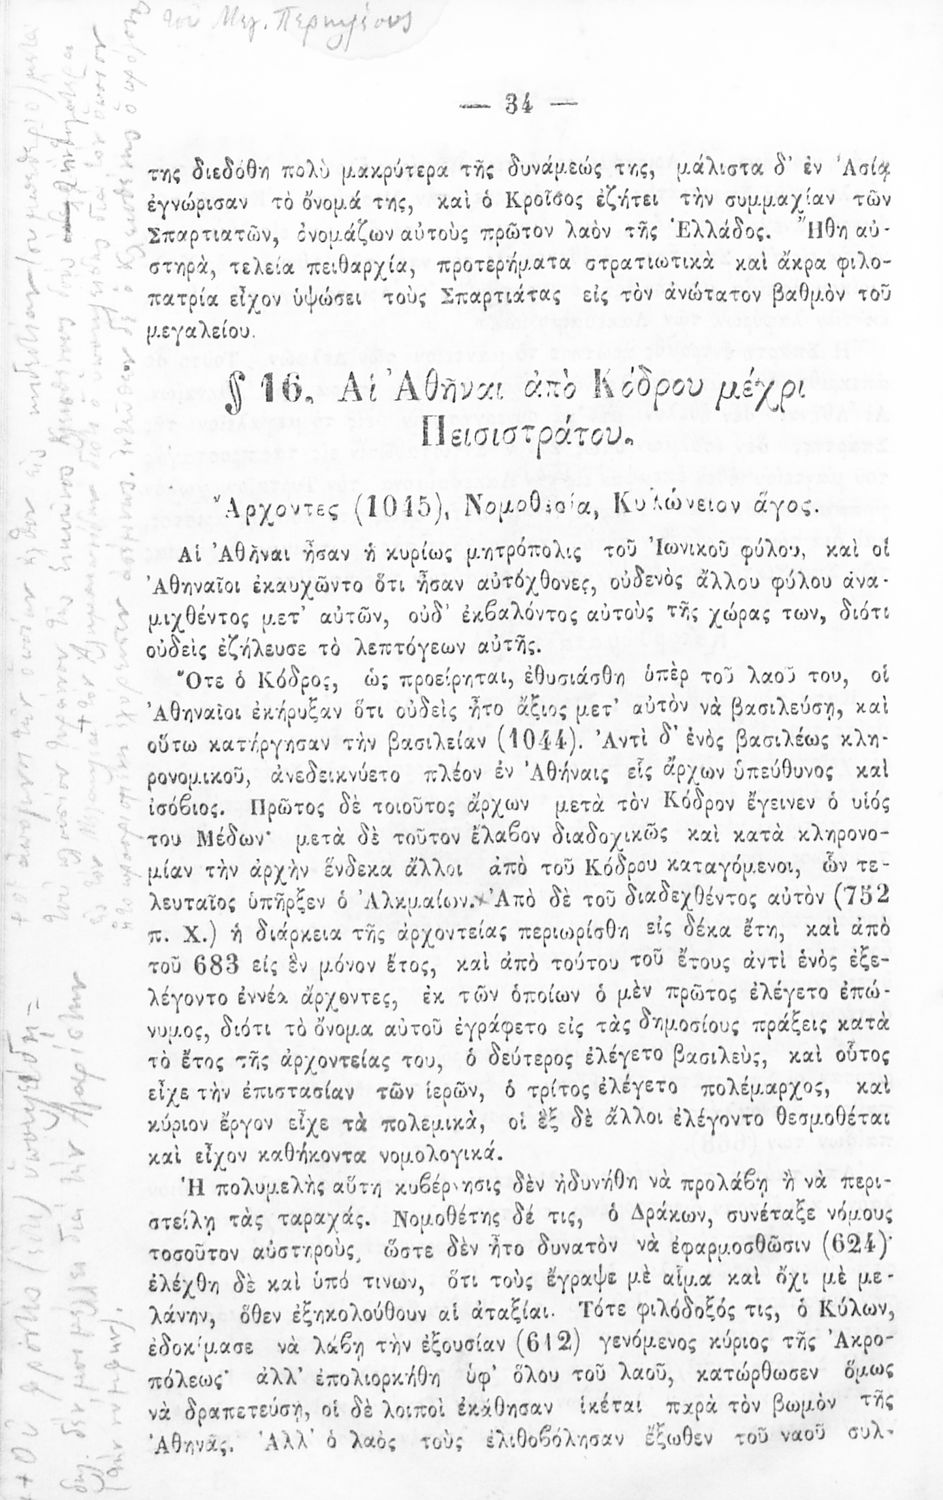 τοῦ Μεγ. Περικλέους
— 34 —
της διεδόθη πολὺ μακρύτερα τῆς δυνάμεώς της, μάλιστα δ' ἐν Ἀσίᾳ
ἐγνώρισαν τὸ ὄνομά της, καὶ ὁ Κροῖσος ἐζήτει τὴν συμμαχίαν τῶν
Σπαρτιατῶν, ὀνομάζων αὐτοὺς πρῶτον λαὸν τῆς Ἑλλάδος. Ἤθη αὐ-
στηρὰ, τελεία πειθαρχία, προτερήματα στρατιωτικὰ καὶ ἄκρα φιλο-
πατρία εἶχον ὑψώσει τοὺς Σπαρτιάτας εἰς τὸν ἀνώτατον βαθμὸν τοῦ
μεγαλείου.
§ 16. Αἱ Ἀθῆναι ἀπὸ Κόδρου μέχρι
Πεισιστράτου.
Ἄρχοντες (1045), Νομοθεσία, Κυλώνειον ἄγος.
Αἱ Ἀθῆναι ἦσαν ἡ κυρίως μητρόπολις τοῦ Ἰωνικοῦ φύλου, καὶ οἱ
Ἀθηναῖοι ἐκαυχῶντο ὅτι ἦσαν αὐτόχθονες, οὐδενὸς ἄλλου φύλου ἀνα-
μιχθέντος μετ' αὐτῶν, οὐδ' ἐκβαλόντος αὐτοὺς τῆς χώρας των, διότι
οὐδεὶς ἐζήλευσε τὸ λεπτόγεων αὐτῆς.
Ὅτε ὁ Κόδρος, ὡς προείρηται, ἐθυσιάσθη ὑπὲρ τοῦ λαοῦ του, οἱ
Ἀθηναῖοι ἐκήρυξαν ὅτι οὐδεὶς ἦτο ἄξιος μετ' αὐτὸν νὰ βασιλεύσῃ, καὶ
οὕτω κατήργησαν τὴν βασιλείαν (1044). Ἀντὶ δ' ἑνὸς βασιλέως κλη-
ρονομικοῦ, ἀνεδεικνύετο πλέον ἐν Ἀθήναις εἷς ἄρχων ὑπεύθυνος καὶ
ἰσόβιος. Πρῶτος δὲ τοιοῦτος ἄρχων μετὰ τὸν Κόδρον ἔγεινεν ὁ υἱός
του Μέδων· μετὰ δὲ τοῦτον ἔλαβον διαδοχικῶς καὶ κατὰ κληρονο-
μίαν τὴν ἀρχὴν ἕνδεκα ἄλλοι ἀπὸ τοῦ Κόδρου καταγόμενοι, ὧν τε-
λευταῖος ὑπῆρξεν ὁ Ἀλκμαίων. Ἀπὸ δὲ τοῦ διαδεχθέντος αὐτὸν (752
π. Χ.) ἡ διάρκεια τῆς ἀρχοντείας περιωρίσθη εἰς δέκα ἔτη, καὶ ἀπὸ
τοῦ 683 εἰς ἓν μόνον ἔτος, καὶ ἀπὸ τούτου τοῦ ἔτους ἀντὶ ἑνὸς ἐξε-
λέγοντο ἐννέα ἄρχοντες, ἐκ τῶν ὁποίων ὁ μὲν πρῶτος ἐλέγετο ἐπώ-
νυμος, διότι τὸ ὄνομα αὐτοῦ ἐγράφετο εἰς τὰς δημοσίους πράξεις κατὰ
τὸ ἔτος τῆς ἀρχοντείας του, ὁ δεύτερος ἐλέγετο βασιλεὺς, καὶ οὗτος
εἶχε τὴν ἐπιστασίαν τῶν ἱερῶν, ὁ τρίτος ἐλέγετο πολέμαρχος, καὶ
κύριον ἔργον εἶχε τὰ πολεμικὰ, οἱ ἓξ δὲ ἄλλοι ἐλέγοντο θεσμοθέται
καὶ εἶχον καθήκοντα νομολογικά.
Ἡ πολυμελὴς αὕτη κυβέρνησις δὲν ἠδυνήθη νὰ προλάβῃ ἢ νὰ περι-
στείλῃ τὰς ταραχάς. Νομοθέτης δέ τις, ὁ Δράκων, συνέταξε νόμους
τοσοῦτον αὐστηροὺς, ὥστε δὲν ἦτο δυνατὸν νὰ ἐφαρμοσθῶσιν (624)·
ἐλέχθη δὲ καὶ ὑπό τινων, ὅτι τοὺς ἔγραψε μὲ αἷμα καὶ ὄχι μὲ με-
λάνην, ὅθεν ἐξηκολούθουν αἱ ἀταξίαι. Τότε φιλόδοξός τις, ὁ Κύλων,
ἐδοκίμασε νὰ λάβῃ τὴν ἐξουσίαν (612) γενόμενος κύριος τῆς Ἀκρο-
πόλεως· ἀλλ' ἐπολιορκήθη ὑφ' ὅλου τοῦ λαοῦ, κατώρθωσεν ὅμως
νὰ δραπετεύσῃ, οἱ δὲ λοιποὶ ἐκάθησαν ἱκέται παρὰ τὸν βωμὸν τῆς
Ἀθηνᾶς. Ἀλλ' ὁ λαὸς τοὺς ἐλιθοβόλησαν ἔξωθεν τοῦ ναοῦ συλ-